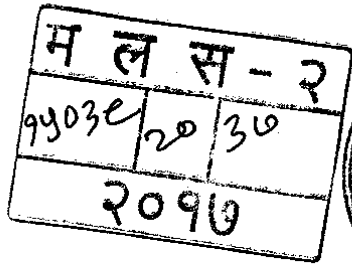 म ल स - २
१५०३९ २० ३७
२०१७